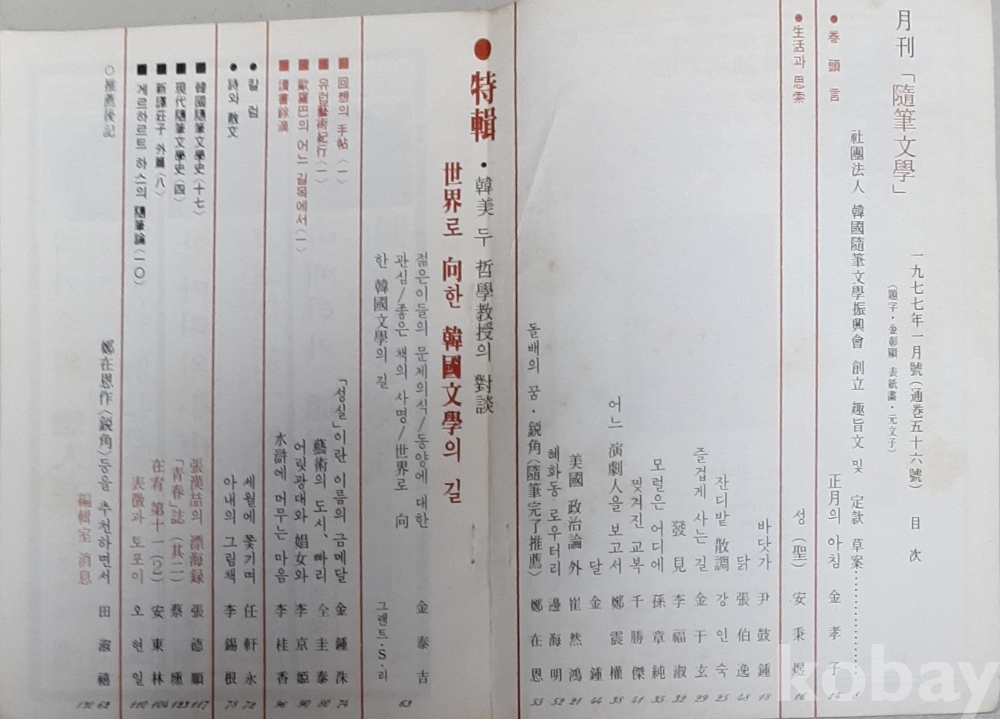 月刊「隨筆文學」 一九七七年一月號(通卷五十六號) 目次
(題字・金彰顯 表紙畵・元文子)
社團法人 韓國隨筆文學振興會 創立 趣旨文 및 定款 草案 8
● 卷頭言 正月의 아침 金孝子 14
● 生活과 思索 성(聖) 安秉煜 16
바닷가 尹鼓鍾 18
닭 張伯逸 48
잔디밭 散調 강인숙 25
즐겁게 사는 길 金于玄 29
發見 李福淑 32
모럴은 어디에 孫章純 35
찢겨진 교복 千勝傑 41
어느 演劇人을 보고서 鄭震權 38
달 金鍾 44
美國 政治論 外 崔然鴻 21
혜화동 로우터리 邊海明 52
돌배의 꿈・鋭角(隨筆完了推薦) 鄭在恩 53
● 特輯・韓美 두 哲學敎授의 對談
世界로 向한 韓國文學의 길
젊은이들의 문제의식/동양에 대한
관심/좋은 책의 사명/世界로 向
한 韓國文學의 길
金泰吉
그랜트・S・리 63
■ 回想의 手帖(一) 「성실」이란 이름의 금메달 金鍾洙 74
■ 유럽藝術紀行(一) 藝術의 도시、빠리 全圭泰 80
■ 歐羅巴의 어느 길목에서(一) 어릿광대와 娼女와 李京姬 90
■ 讀書餘滴 水滸에 머무는 마음 李桂香 96
● 칼럼 세월에 쫓기며 任軒永 72
● 詩와 散文 아내의 그림책 李錫根 78
■ 韓國隨筆文學史(十七) 張漢喆의 漂海録 張德順 117
■ 現代隨筆文學史(四) 「靑春」誌(其二) 蔡壎 123
■ 新譯莊子 外篇(八) 在宥 第十一(2) 安東林 104
■ 게르하르트 하스의 隨筆論(一〇) 表徵과 토포이 오현일 110
○ 推薦後記 鄭在恩作〈鋭角〉등을 추천하면서 田淑禧 62
編輯室 消息 130
kobay